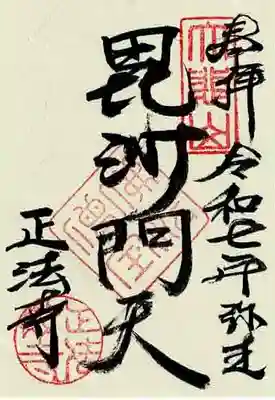 奉拝 令和七年弥生
毘沙門天
正法寺